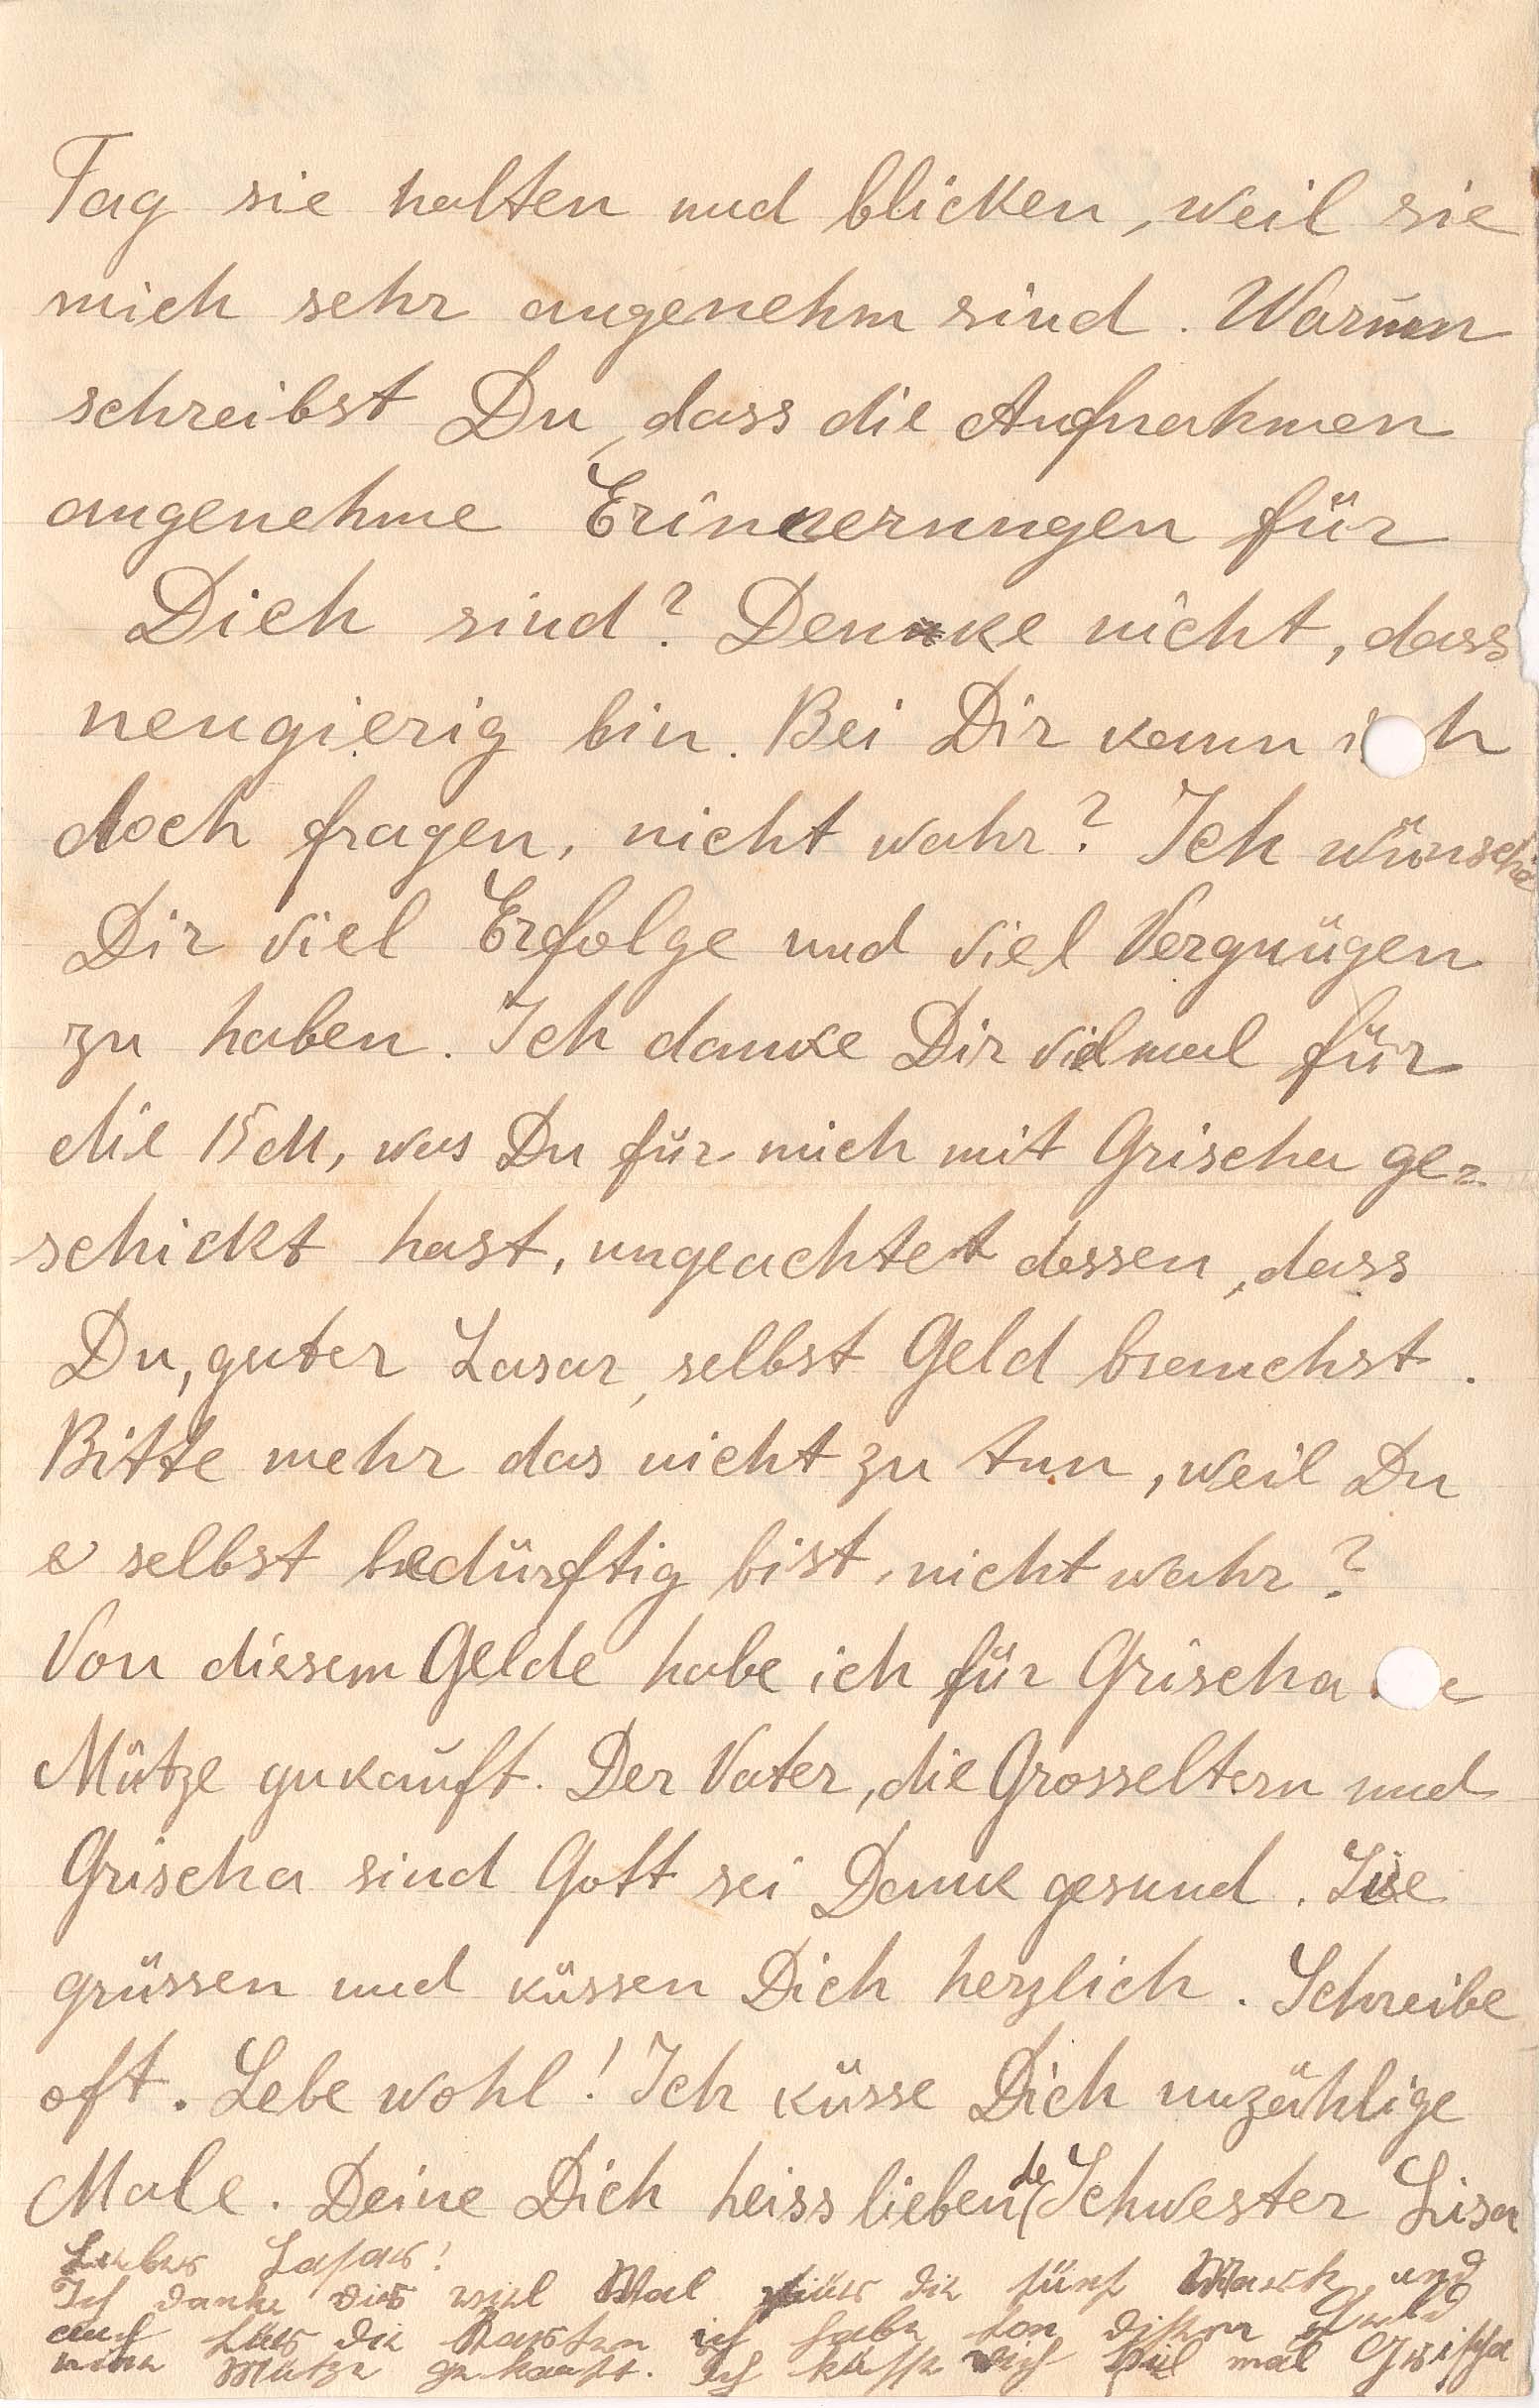 Tag sie halten und blicken, weil sie
mich sehr angenehm sind. Warum
schreibst Du, dass die Aufnahmen
angenehme Erinnerungen für
Dich sind? Denke nicht, dass
neugierig bin. Bei Dir kann ich
doch fragen, nicht wahr? Ich wünsche
Dir viel Erfolge und viel Vergnügen
zu haben. Ich danke Dir vielmal für
die 15 M, was Du für mich mit Grischa ge=
schickt hast, ungeachtet dessen, dass
Du, guter Lasar, selbst Geld brauchst.
Bitte mehr das nicht zu tun, weil Du
selbst bedürftig bist, nicht wahr?
Von diesem Gelde habe ich für Grischa
Mütze gukauft. Der Vater, die Grosseltern und
Grischa sind Gott sei Dank gesund. Sie
grüssen und küssen Dich herzlich. Schreibe
oft. Lebe wohl! Ich küsse Dich unzählige
Male. Deine Dich heiss liebende Schwester Lisa
Lieber Lasar!
Ich danke dir viel Mal für die fünf Mark und
auch für die Karten ich habe fon disem Geld
eine Mütze gekauft. Ich küsse dich fiel mal Grischa